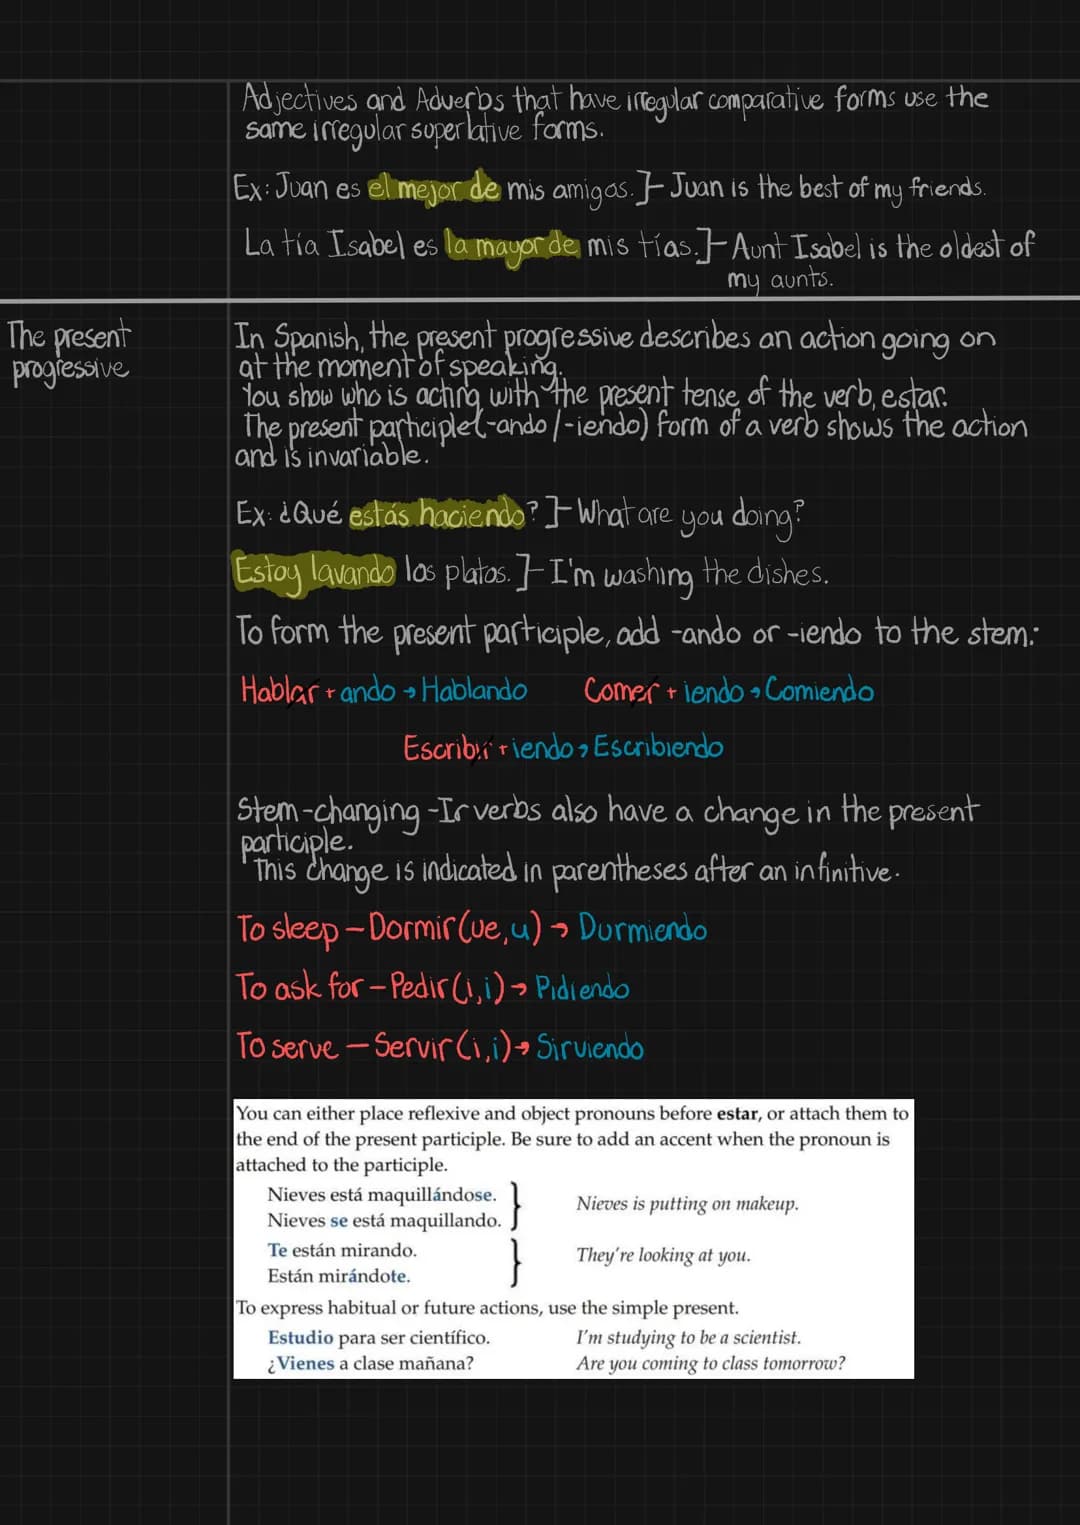 Adjectives and Adverbs that have irregular comparative forms use the
same irregular superlative forms.
Ex: Juan es el mejor de mis amigos. }- Juan is the best of my friends.
La tía Isabel es la mayor de mis tías. ]- Aunt Isabel is the oldest of
my aunts.
The present
progressive
In Spanish, the present progressive describes an action going on
at the moment of speaking.
You show who is acting with the present tense of the verb, estar.
The present participle (-ando /-iendo) form of a verb shows the action
and is invariable.
Ex: ¿Qué estás haciendo? ]- What are you doing?
Estoy lavando los platos. ]- I'm washing the dishes.
To form the present participle, add -ando or -iendo to the stem:
Hablar + ando → Hablando Comer + iendo → Comiendo
Escribir + iendo → Escribiendo
Stem-changing -Ir verbs also have a change in the present
participle.
This change is indicated in parentheses after an infinitive.
To sleep – Dormir (ue, u) → Durmiendo
To ask for – Pedir (i, i) → Pidiendo
To serve – Servir (i, i) → Sirviendo
You can either place reflexive and object pronouns before estar, or attach them to
the end of the present participle. Be sure to add an accent when the pronoun is
attached to the participle.
Nieves está maquillándose.
Nieves se está maquillando. } Nieves is putting on makeup.
Te están mirando.
Están mirándote. } They're looking at you.
To express habitual or future actions, use the simple present.
Estudio para ser científico. I'm studying to be a scientist.
¿Vienes a clase mañana? Are you coming to class tomorrow?